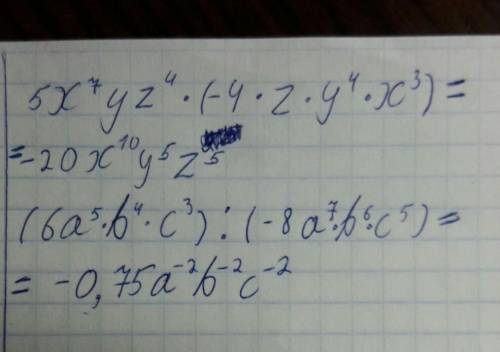 5x⁷yz⁴·(-4·z·y⁴·x³)=
=-20x¹⁰y⁵z⁵
(6a⁵·b⁴·c³):(-8a⁷·b⁶·c⁵)=
= -0,75a⁻²b⁻²c⁻²